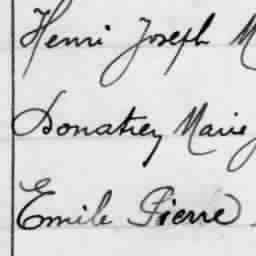 Henri Joseph M
Donatrey Marie
Emile Pierre